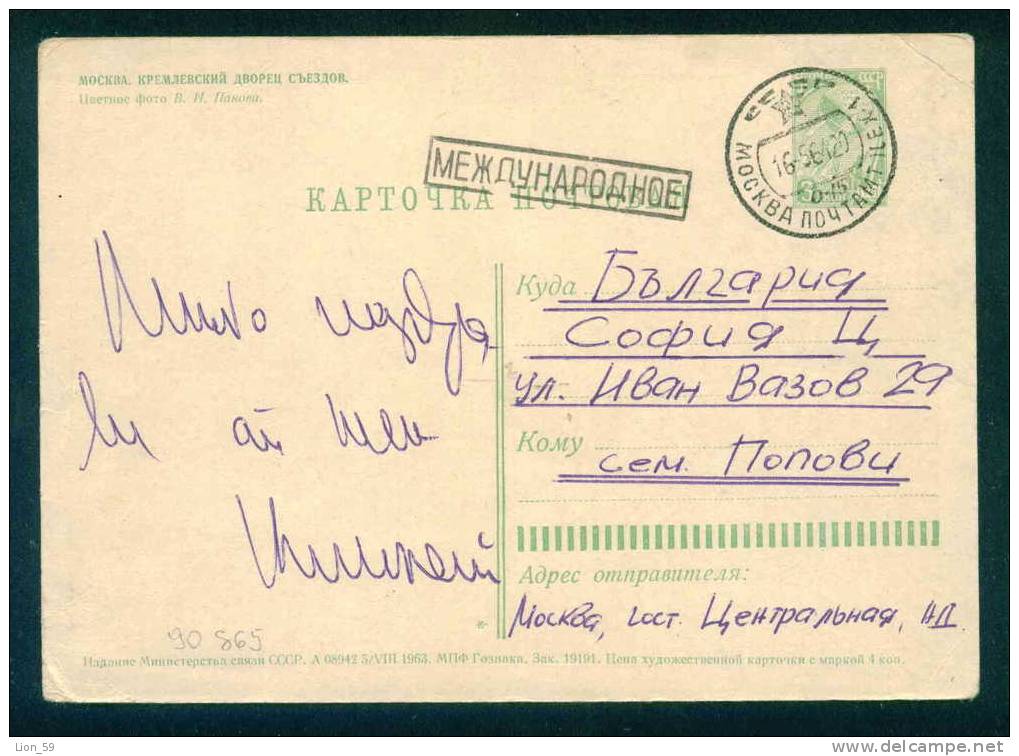 МОСКВА. КРЕМЛЕВСКИЙ ДВОРЕЦ СЪЕЗДОВ.
Цветное фото В. И. Панова.
МЕЖДУНАРОДНОЕ
КАРТОЧКА ПОЧТОВАЯ
МОСКВА ПОЧТАМТ
Куда България
София Ц
ул. Иван Вазов 29
Кому
сем. Попови
Много поздра
ви от мен
Адрес отправителя:
Москва, гост. Центральная, НД
90 865
Издание Министерства связи СССР. А 08942 5/VIII 1963. МПФ Гознака. Зак. 19191. Цена художественной карточки с маркой 4 коп.
Lion_59
www.delcampe.net